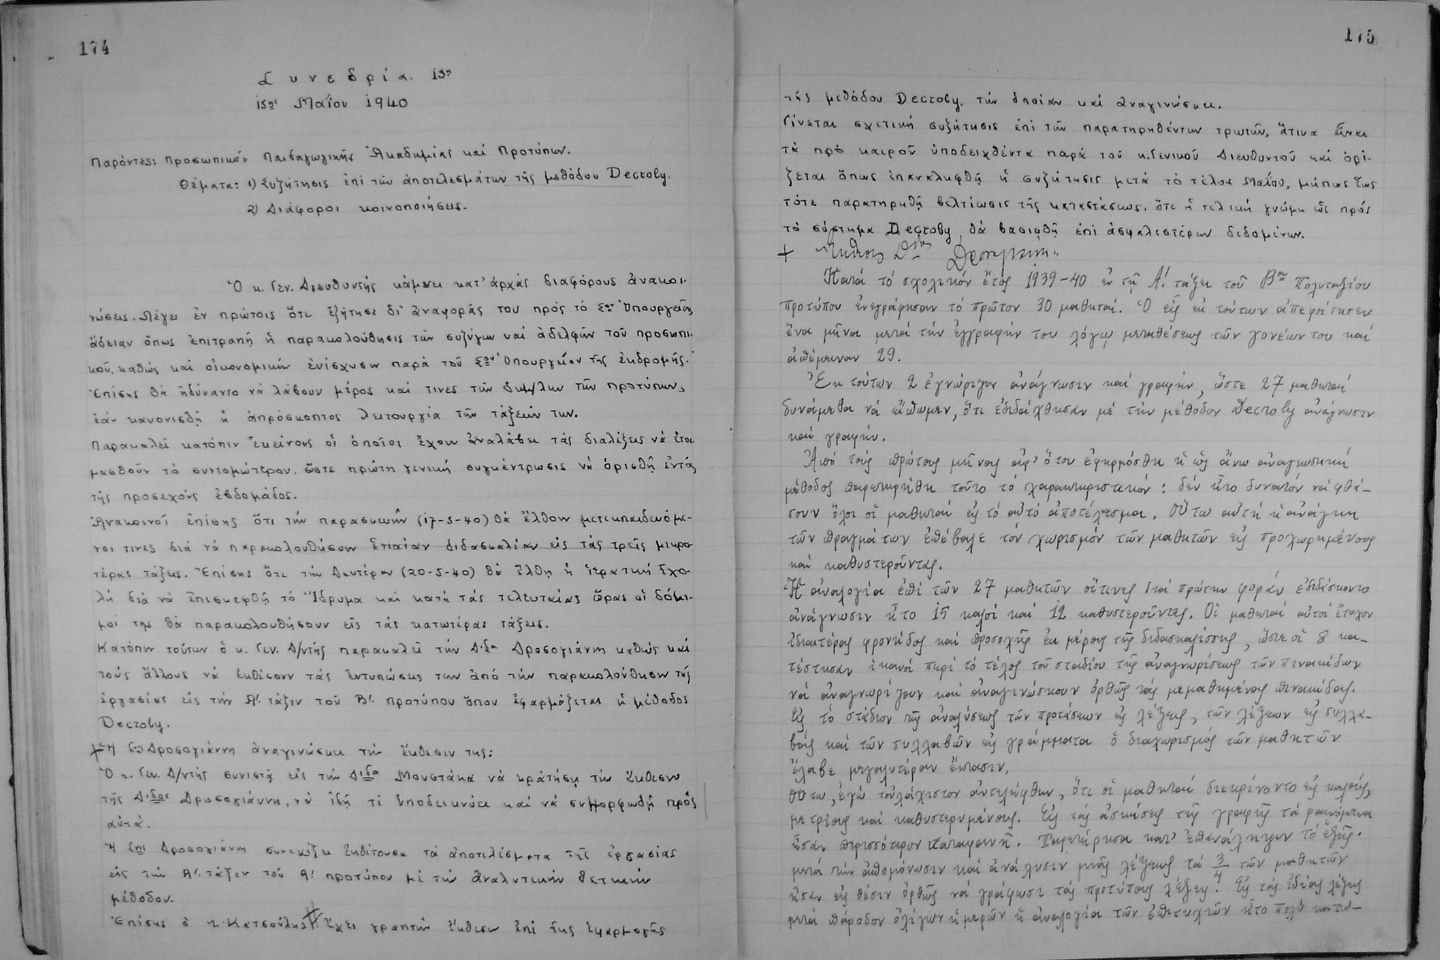 174
Συνεδρία 15η
15ης Μαΐου 1940
Παρόντες: Προσωπικόν Παιδαγωγικῆς Ἀκαδημίας καὶ Προτύπων.
Θέματα: 1) Συζήτησις ἐπὶ τῶν ἀποτελεσμάτων τῆς μεθόδου Decroly.
2) Διάφοροι κοινοποιήσεις.
Ὁ κ. Γεν. Διευθυντὴς κάμνει κατ' ἀρχὰς διαφόρους ἀνακοι-
νώσεις. Λέγει ἐν πρώτοις ὅτι ἐζήτησε δι' ἀναφορᾶς του πρὸς τὸ Σον Ὑπουργεῖον
ἄδειαν ὅπως ἐπιτραπῇ ἡ παρακολούθησις τῶν συζύγων καὶ ἀδελφῶν τοῦ προσωπι-
κοῦ, καθὼς καὶ οἰκονομικὴν ἐνίσχυσιν παρὰ τοῦ Σου Ὑπουργείου τῆς ἐκδρομῆς.
Ἐπίσης θὰ ἠδύναντο νὰ λάβουν μέρος καὶ τινες τῶν δ/λων τῶν προτύπων,
ἐὰν κανονισθῇ ἡ ἀπρόσκοπτος λειτουργία τῶν τάξεών των.
Παρακαλεῖ κατόπιν ἐκείνους οἱ ὁποῖοι ἔχουν ἀναλάβει τὰς διαλέξεις νὰ ἑτοι-
μασθοῦν τὸ συντομώτερον, ὥστε πρώτη γενικὴ συγκέντρωσις νὰ ὁρισθῇ ἐντὸς
τῆς προσεχοῦς ἑβδομάδος.
Ἀνακοινοῖ ἐπίσης ὅτι τὴν Παρασκευὴν (17-5-40) θὰ ἔλθουν μετεκπαιδευόμε-
νοι τινες διὰ νὰ παρακολουθήσουν ἑνιαίαν διδασκαλίαν εἰς τὰς τρεῖς μικρο-
τέρας τάξεις. Ἐπίσης ὅτι τὴν Δευτέραν (20-5-40) θὰ ἔλθῃ ἡ Ἱερατικὴ Σχο-
λὴ διὰ νὰ ἐπισκεφθῇ τὸ Ἵδρυμα καὶ κατὰ τὰς τελευταίας ὥρας οἱ δόκι-
μοί της θὰ παρακολουθήσουν εἰς τὰς κατωτέρας τάξεις.
Κατόπιν τούτων ὁ κ. Γεν. Δ/ντὴς παρακαλεῖ τὴν Δ/δα Δροσογιάννη καθὼς καὶ
τοὺς ἄλλους νὰ ἐκθέσουν τὰς ἐντυπώσεις των ἀπὸ τὴν παρακολούθησιν τῆς
ἐργασίας εἰς τὴν Α' τάξιν τοῦ Β' προτύπου ὅπου ἐφαρμόζεται ἡ μέθοδος
Decroly.
+ Ἡ Δροσογιάννη ἀναγινώσκει τὴν ἔκθεσίν της:
Ὁ κ. Γεν. Δ/ντὴς συνιστᾷ εἰς τὴν Δ/δα Μουστάκα νὰ κρατήσῃ τὴν ἔκθεσιν
τῆς Δ/δος Δροσογιάννη, νὰ ἰδῇ τί ὑποδεικνύει καὶ νὰ συμμορφωθῇ πρὸς
αὐτά.
Ἡ Δροσογιάννη συνεχίζει ἐκθέτουσα τὰ ἀποτελέσματα τῆς ἐργασίας
εἰς τὴν Α' τάξιν τοῦ Α' προτύπου μὲ τὴν ἀναλυτικὴν θετικὴν
μέθοδον.
Ἐπίσης ὁ κ. Κατσούλης ἔχει γραπτὴν ἔκθεσιν ἐπὶ τῆς ἐφαρμογῆς
175
τῆς μεθόδου Decroly, τὴν ὁποίαν καὶ ἀναγινώσκει.
Γίνεται σχετικὴ συζήτησις ἐπὶ τῶν παρατηρηθέντων τρωτῶν, ἅτινα εἶναι
τὰ πρὸ καιροῦ ὑποδειχθέντα παρὰ τοῦ κ. Γενικοῦ Διευθυντοῦ καὶ ὁρί-
ζεται ὅπως ἐπαναληφθῇ ἡ συζήτησις μετὰ τὸ τέλος Μαΐου, μήπως ἕως
τότε παρατηρηθῇ βελτίωσις τῆς καταστάσεως, ὅτε ἡ τελικὴ γνώμη ὡς πρὸς
τὸ σύστημα Decroly θὰ βασισθῇ ἐπὶ ἀσφαλεστέρων δεδομένων.
+ Ἔκθεσις Δροσογιάννη
Κατὰ τὸ σχολικὸν ἔτος 1939-40 ἐν τῇ Α' τάξει τοῦ Βου Πολυταξίου
προτύπου ἐνεγράφησαν τὸ πρῶτον 30 μαθηταί. Ὁ εἷς ἐκ τούτων ἀπεφοίτησεν
ἕνα μῆνα μετὰ τὴν ἐγγραφήν του λόγῳ μεταθέσεως τῶν γονέων του καὶ
ἀπέμειναν 29.
Ἐκ τούτων 2 ἐγνώριζον ἀνάγνωσιν καὶ γραφήν, ὥστε 27 μαθηταὶ
δυνάμεθα νὰ εἴπωμεν, ὅτι ἐδιδάχθησαν μὲ τὴν μέθοδον Decroly ἀνάγνωσιν
καὶ γραφήν.
Ἀπὸ τοὺς πρώτους μῆνας ἀφ' ὅτου ἐφηρμόσθη ἡ ὡς ἄνω ἀναγνωστικὴ
μέθοδος παρετηρήθη τοῦτο τὸ χαρακτηριστικόν: δὲν ἦτο δυνατὸν νὰ φθά-
σουν ὅλοι οἱ μαθηταὶ εἰς τὸ αὐτὸ ἀποτέλεσμα. Οὕτω αὐτὴ ἡ ἀνάγκη
τῶν πραγμάτων ἐπέβαλε τὸν χωρισμὸν τῶν μαθητῶν εἰς προχωρημένους
καὶ καθυστεροῦντας.
Ἡ ἀναλογία ἐπὶ τῶν 27 μαθητῶν οἵτινες διὰ πρώτην φορὰν ἐδιδάσκοντο
ἀνάγνωσιν ἦτο 15 καλοὶ καὶ 12 καθυστεροῦντες. Οἱ μαθηταὶ αὐτοὶ ἔτυχον
ἰδιαιτέρας φροντίδος καὶ προσοχῆς ἐκ μέρους τῆς διδασκαλίσσης, ὥστε οἱ 8 κα-
τέστησαν ἱκανοὶ περὶ τὸ τέλος τοῦ σταδίου τῆς ἀναγνωρίσεως τῶν πινακίδων
νὰ ἀναγνωρίζουν καὶ ἀναγινώσκουν ὀρθῶς τὰς μεμαθημένας πινακίδας.
Εἰς τὸ στάδιον τῆς ἀναλύσεως τῶν προτάσεων εἰς λέξεις, τῶν λέξεων εἰς συλλα-
βὰς καὶ τῶν συλλαβῶν εἰς γράμματα ὁ διαχωρισμὸς τῶν μαθητῶν
ἔλαβε μεγαλυτέραν ἔκτασιν.
Οὕτω, ἐγὼ τοὐλάχιστον ἀντελήφθην, ὅτι οἱ μαθηταὶ διεκρίνοντο εἰς καλούς,
μετρίους καὶ καθυστερημένους. Εἰς τὰς ἀσκήσεις τῆς γραφῆς τὰ φαινόμενα
ἦσαν περισσότερον καταφανῆ. Παρετήρησα κατ' ἐπανάληψιν τὸ ἑξῆς:
μετὰ τὴν ἀπομόνωσιν καὶ ἀνάλυσιν μιᾶς λέξεως τὰ 3/4 τῶν μαθητῶν
ἦσαν εἰς θέσιν ὀρθῶς νὰ γράψωσι τὰς προτύπους λέξεις. Εἰς τὰς ἰδίας λέξεις
μετὰ πάροδον ὀλίγων ἡμερῶν ἡ ἀναλογία τῶν ἐπιτυχιῶν ἦτο πολὺ κατω-